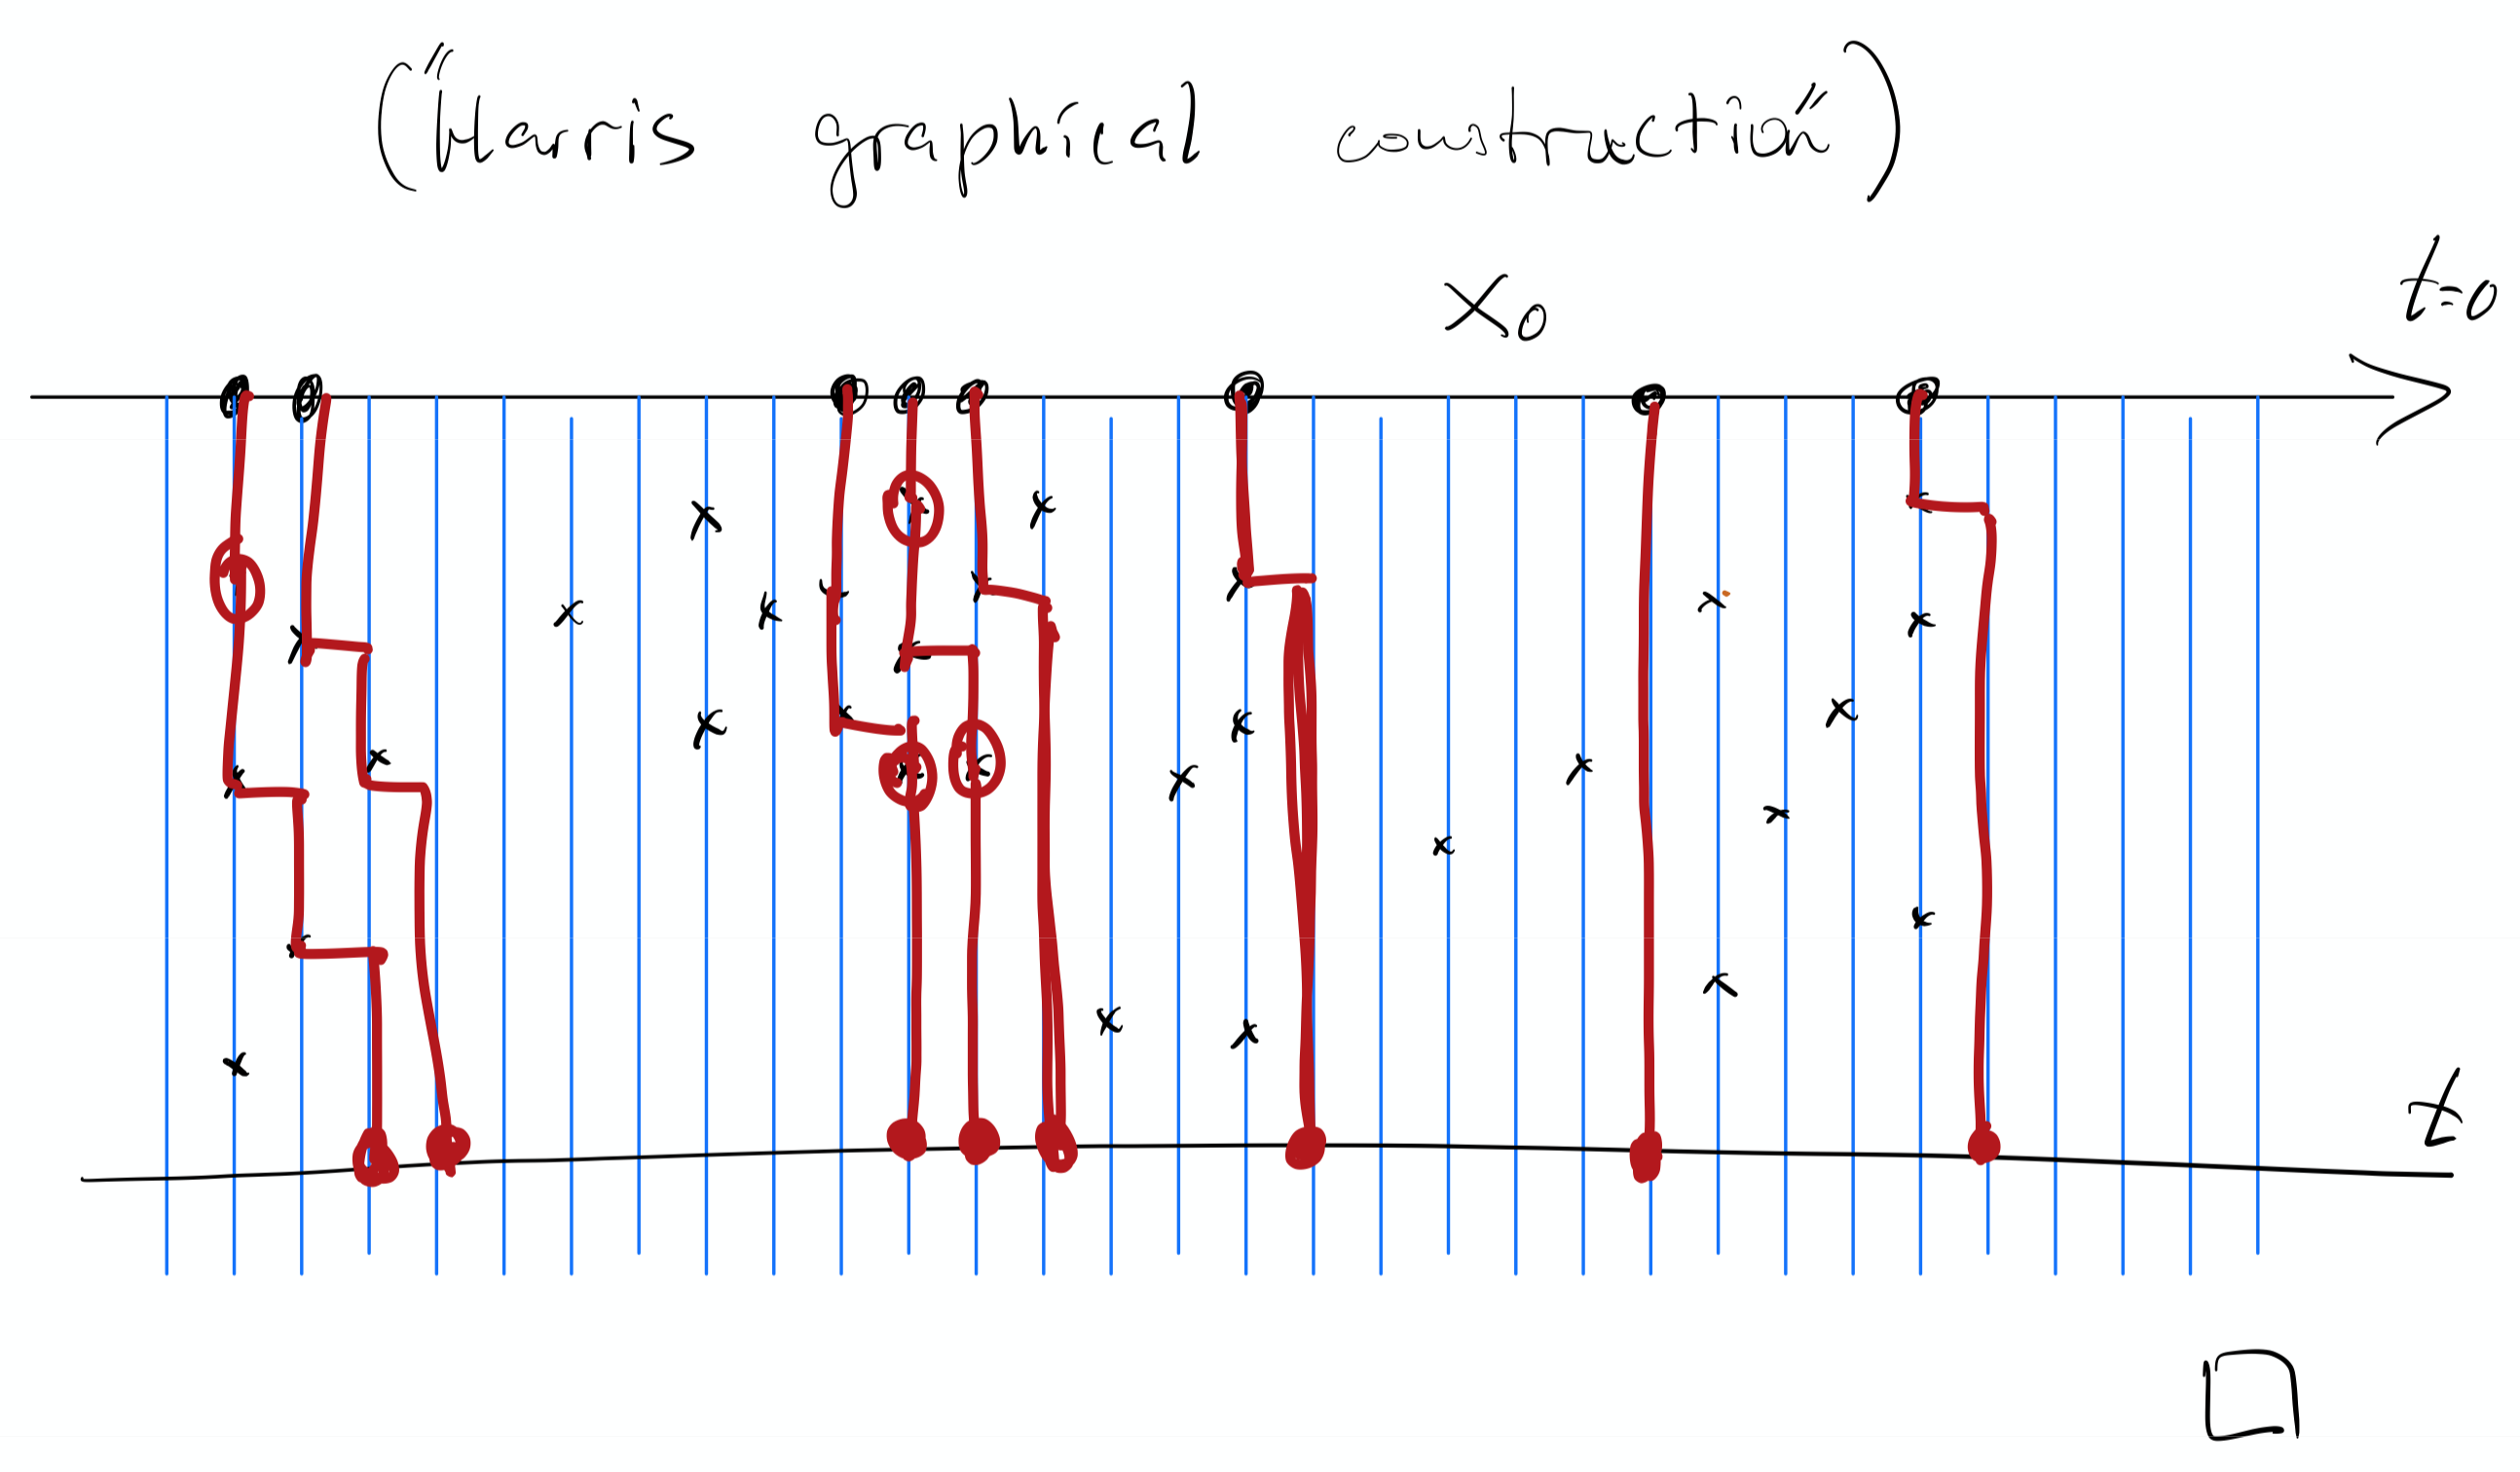 ("Harris graphical construction")
X₀
t=0
t